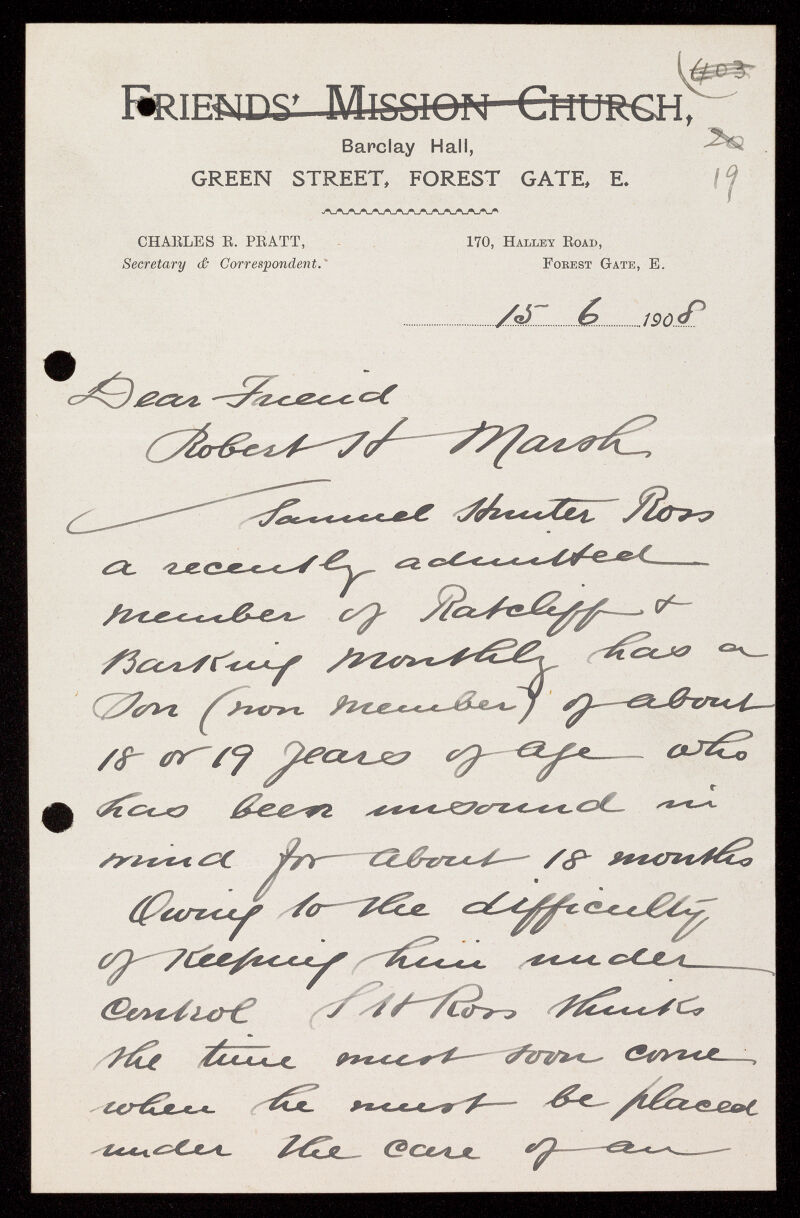 1103
FRIENDS' MISSION CHURCH,
20
19
Barclay Hall,
GREEN STREET, FOREST GATE, E.
CHARLES R. PRATT,
Secretary & Correspondent.
170, HALLEY ROAD,
FOREST GATE, E.
15 6 1908
Dear Friend
Robert H Marsh
Samuel Hunter Ross
a recently admitted
member of Ratcliff &
Barking Monthly has a
Son (non member) of about
18 or 19 years of age who
has been unsound in
mind for about 18 months
Owing to the difficulty
of keeping him under
control S H Ross thinks
the time must soon come
when he must be placed
under the care of an